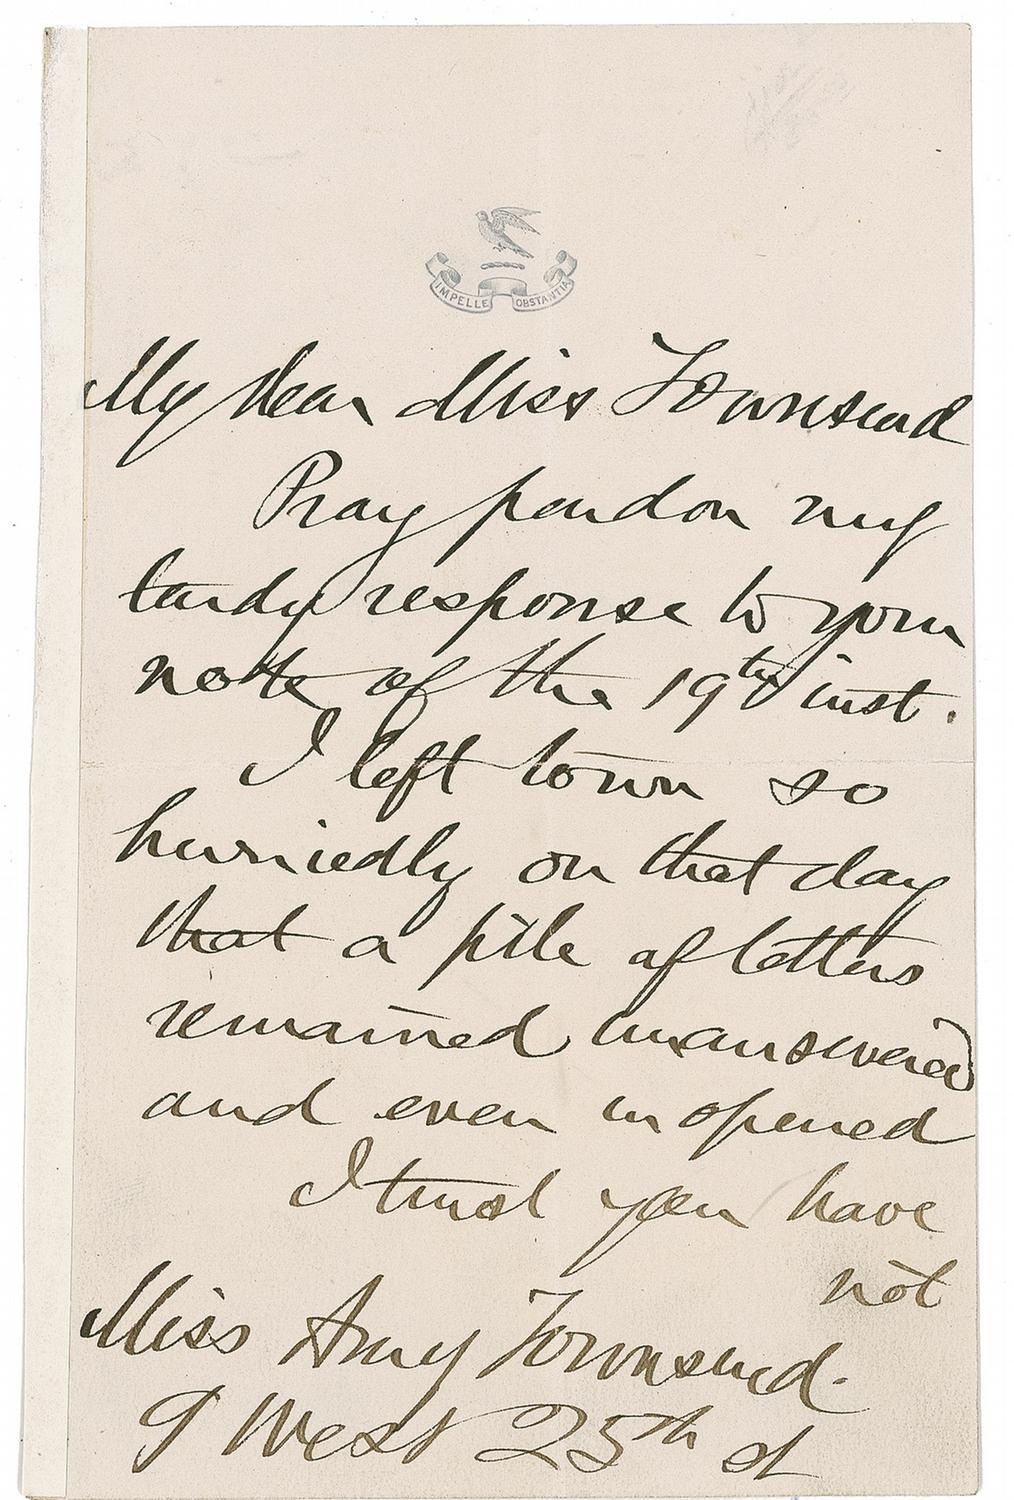 IMPELLE OBSTANTIA
My dear Miss Townsend
Pray pardon my
tardy response to your
note of the 19th inst.
I left town so
hurriedly on that day
that a pile of letters
remained unanswered
and even unopened
I trust you have
not
Miss Amy Townsend.
9 West 25th st